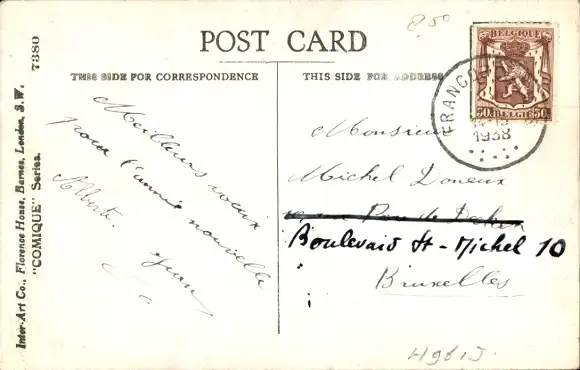 8,50
POST CARD
THIS SIDE FOR CORRESPONDENCE
THIS SIDE FOR ADDRESS
BELGIQUE
50 BELGIE 50
FRANCO
1938
Inter-Art Co., Florence House, Barnes, London, S.W.
"COMIQUE" Series. 7380
Meilleurs voeux
pour l'année nouvelle
Jean
Alberte.
Monsieur
Michel Doneux
Rue de
Boulevard St-Michel 10
Bruxelles